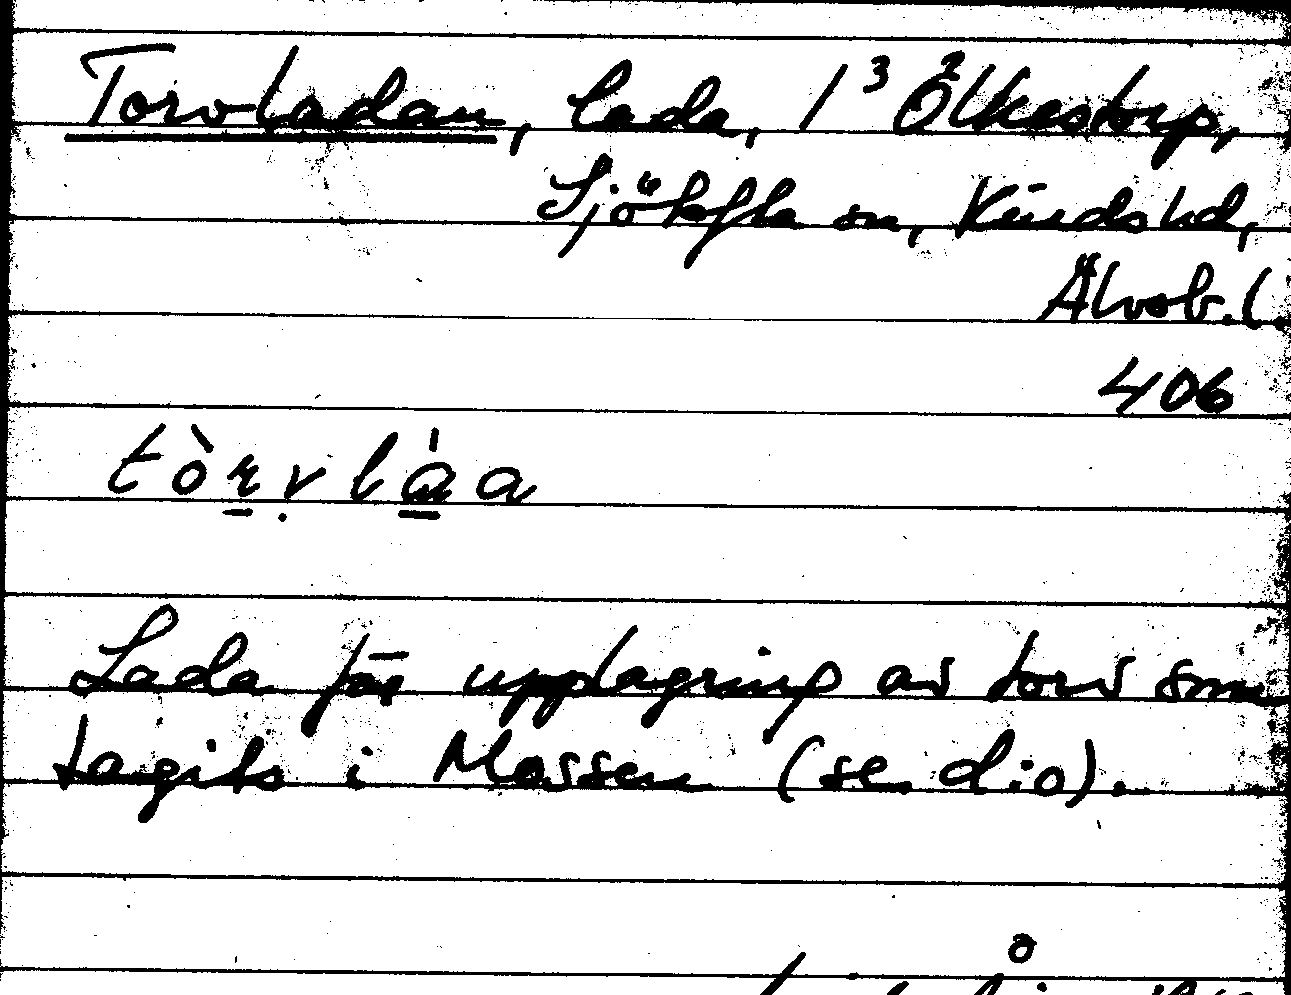 Torvladan, lada, 1³ Ölkestorp,
Sjötofta sn, Kinds hd,
Älvsb. l.
406
tòrvlàa
Lada för upplagring av torv som
tagits i Mossen (se d:o).